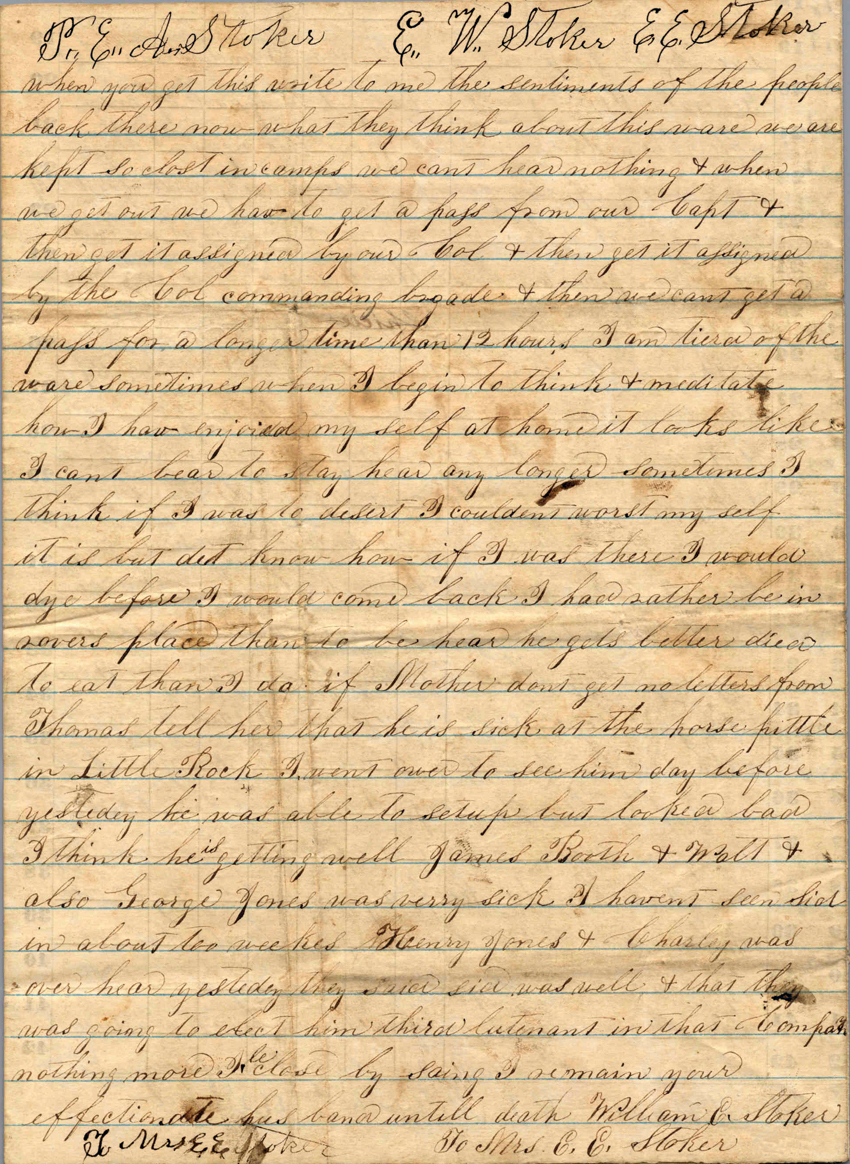 P,, E,, A,, Stoker E,, W,, Stoker E,E, Stoker
when you get this write to me the sentiments of the people
back there now what they think about this ware we are
kept so clost in camps we cant hear nothing & when
we get out we hav to get a pass from our Capt &
then get it assigned by our Col & then get it assigned
by the Col commanding brgade & then we cant get a
pass for a longer time than 12 hours I am tierd of the
ware sometimes when I begin to think & meditate
how I hav enjoied my self at home it looks like
I cant bear to stay hear any longer sometimes I
think if I was to desert I couldent worst my self
it is but det know how if I was there I would
dye before I would come back I had rather be in
rovers place than to be hear he gets better died
to eat than I do if Mother dont get no letters from
Thomas tell her that he is sick at the horse pittle
in Little Rock I went over to see him day before
yestedey he was able to setup but looked bad
I think he is getting well James Booth & Watt &
also George Jones was verry sick I havent seen Sid
in about too weekes Henry Jones & Charley was
over hear yestedey they said sid was well & that they
was going to elect him third lutenant in that Compan
nothing more Ile close by saing I remain your
effectionate husband untill death William E. Stoker
To Mrs E E Stoker To Mrs. E. E. Stoker